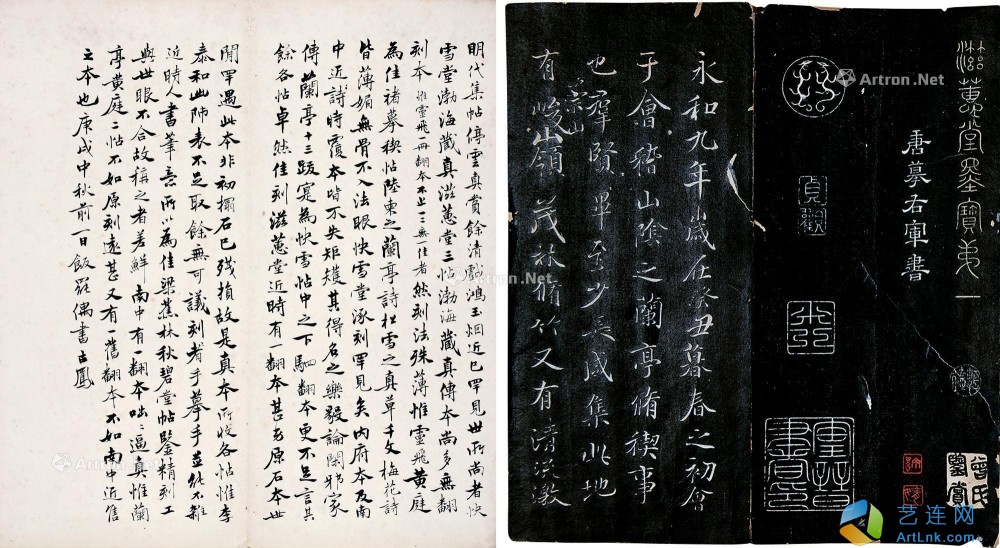 滋蕙堂墨寶第一
唐摹右軍書
永和九年歲在癸丑暮春之初會
于會稽山陰之蘭亭脩稧事
也羣賢畢至少長咸集此地
有崇山峻領茂林脩竹又有清流激
明代集帖停雲真賞餘清戲鴻玉烟近已罕見世所尚者快
雪堂渤海藏真滋蕙堂三帖渤海藏真傳本尚多無翻
刻本惟靈飛一冊翻本不止一二無一佳者然刻法殊薄惟靈飛黄庭
為佳褚摹稧帖陸柬之蘭亭詩松雪之真草千文梅花詩
皆薄媚無骨不入法眼快雪堂涿刻罕見矣内府本及南
中近詩時覆本皆不失矩矱其得名之樂毅論閑邪家
傳蘭亭十三跋寔為快雪帖中之下駟翻本更不足言其
餘各帖卓然佳刻滋蕙堂近時有一翻本甚劣原石本世
閒罕遇此本非初搨石已殘損故是真本所收各帖惟李
泰和出師表不足取餘無可議刻者手摹手並能不雜
近時人書筆意所以為佳梁蕉林秋碧堂帖鑒精刻工
與世眼不合故稱之者差鮮南中有一翻本咄咄逼真惟蘭
亭黄庭二帖不如原刻遠甚又有一舊翻本不如南中近
之本也庚戌中秋前一日飯罷偶書
曾氏鑒賞
Artron.Net
Artron.Net
艺连网
ArtLnk.com